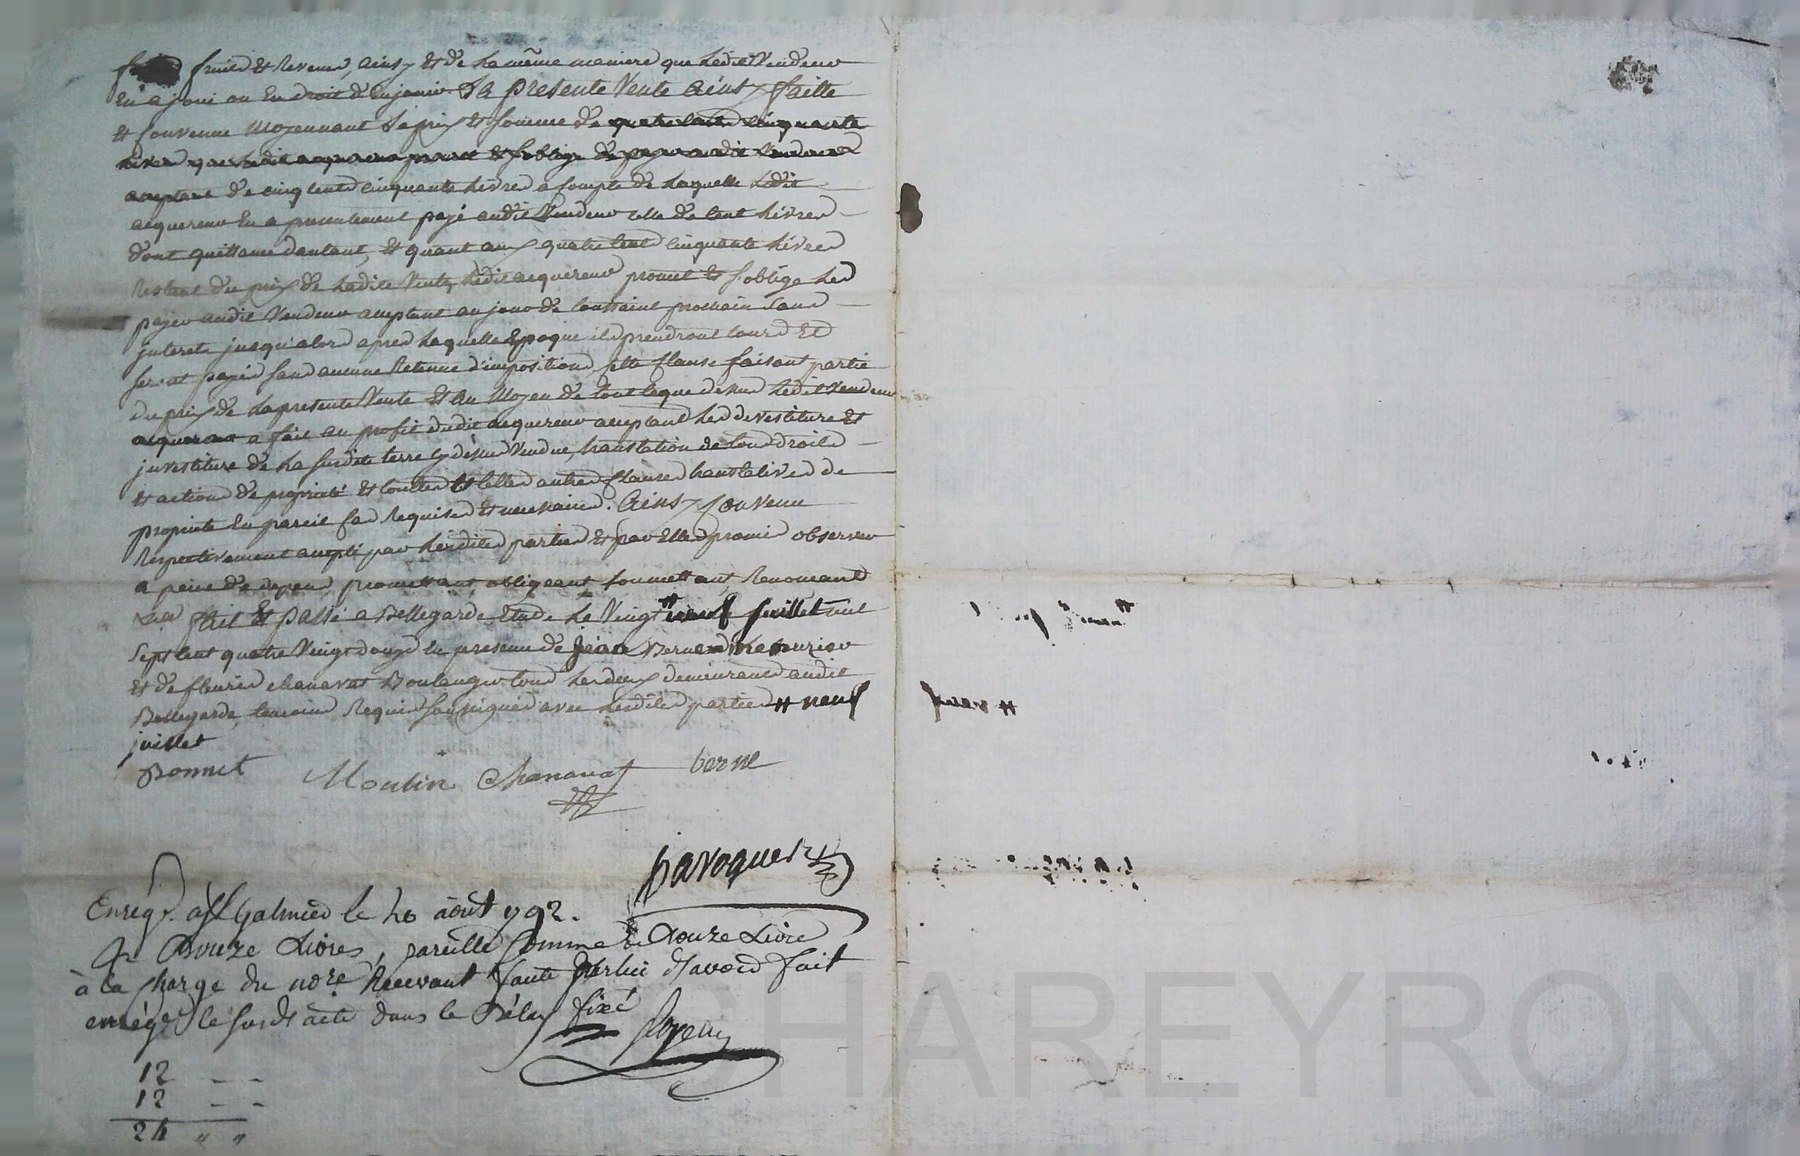 fruits et Revenus, ainsy et de la même maniere que ledit Vendeur
En a joui ou En droit d'en jouir. La presente Vente ainsy faitte
et Convenue Moyennant Le prix et somme de quatre Cents Cinquante
livres que ledit acquereur promet et s'oblige de payer audit Vendeur
acceptant de cinq Cents cinquante livres a Compte de laquelle Ledit
acquereur En a presentement payé audit Vendeur celle de Cent livres
dont quittance d'autant, et quant aux quatre Cents Cinquante livres
Restant du prix de ladite Vente, ledit acquereur promet et s'oblige les
payer audit Vendeur acceptant au jour de Toussaint prochain Sans
interets jusqu'alors apres laquelle Epoque ils prendront Cours Et
seront payés sans aucune Retenue d'impositions, cette Clause faisant partie
du prix de la presente Vente et Au Moyen de tout Ceque dessus Ledit Vendeur
acquereur a fait au profit dudit acquereur acceptant les devestiture et
investiture de La susdite terre cy dessus Vendue, translation de tous droits
et actions de propriété et toutes Et telles autres Clauses translatives de
propriete En pareil Cas Requises et necessaires. Ainsy Convenu
Respectivement accepté par lesdites parties Et par Elles promis observer
a peine de depens, promettant, obligeant, soumettant, Renonçant
fait Et passé a Bellegarde Etude le Vingt neuf juillet mil
sept cent quatre Vingt douze En presence de Jean Berne
et de fleurie chanavat Boulanger tous les deux demeurants audit
Bellegarde, temoins Requis soussignés avec lesdites parties # neuf
juillet
Bonnet Moulin Chanavat berne
baroquer
Enregé. a St Galmier le 20 août 1792.
Douze Livres, pareille Somme de Douze Livres
à la Charge du nore Recevant faute par lui d'avoir fait
enrégr le susdt acte dans le Délay fixé
12 - -
12 - -
24 " "